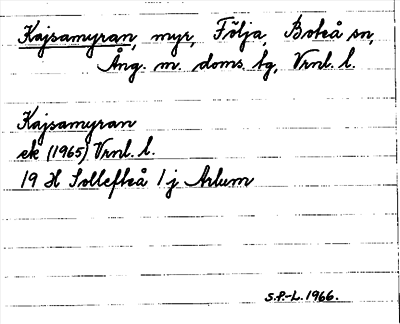 Kajsamyran, myr, Följa, Boteå sn,
Ång. m. doms. tg, Vrnl. l.
Kajsamyran
ek (1965) Vrnl. l.
19 H Sollefteå 1 j Arlum
S.P.-L. 1966.